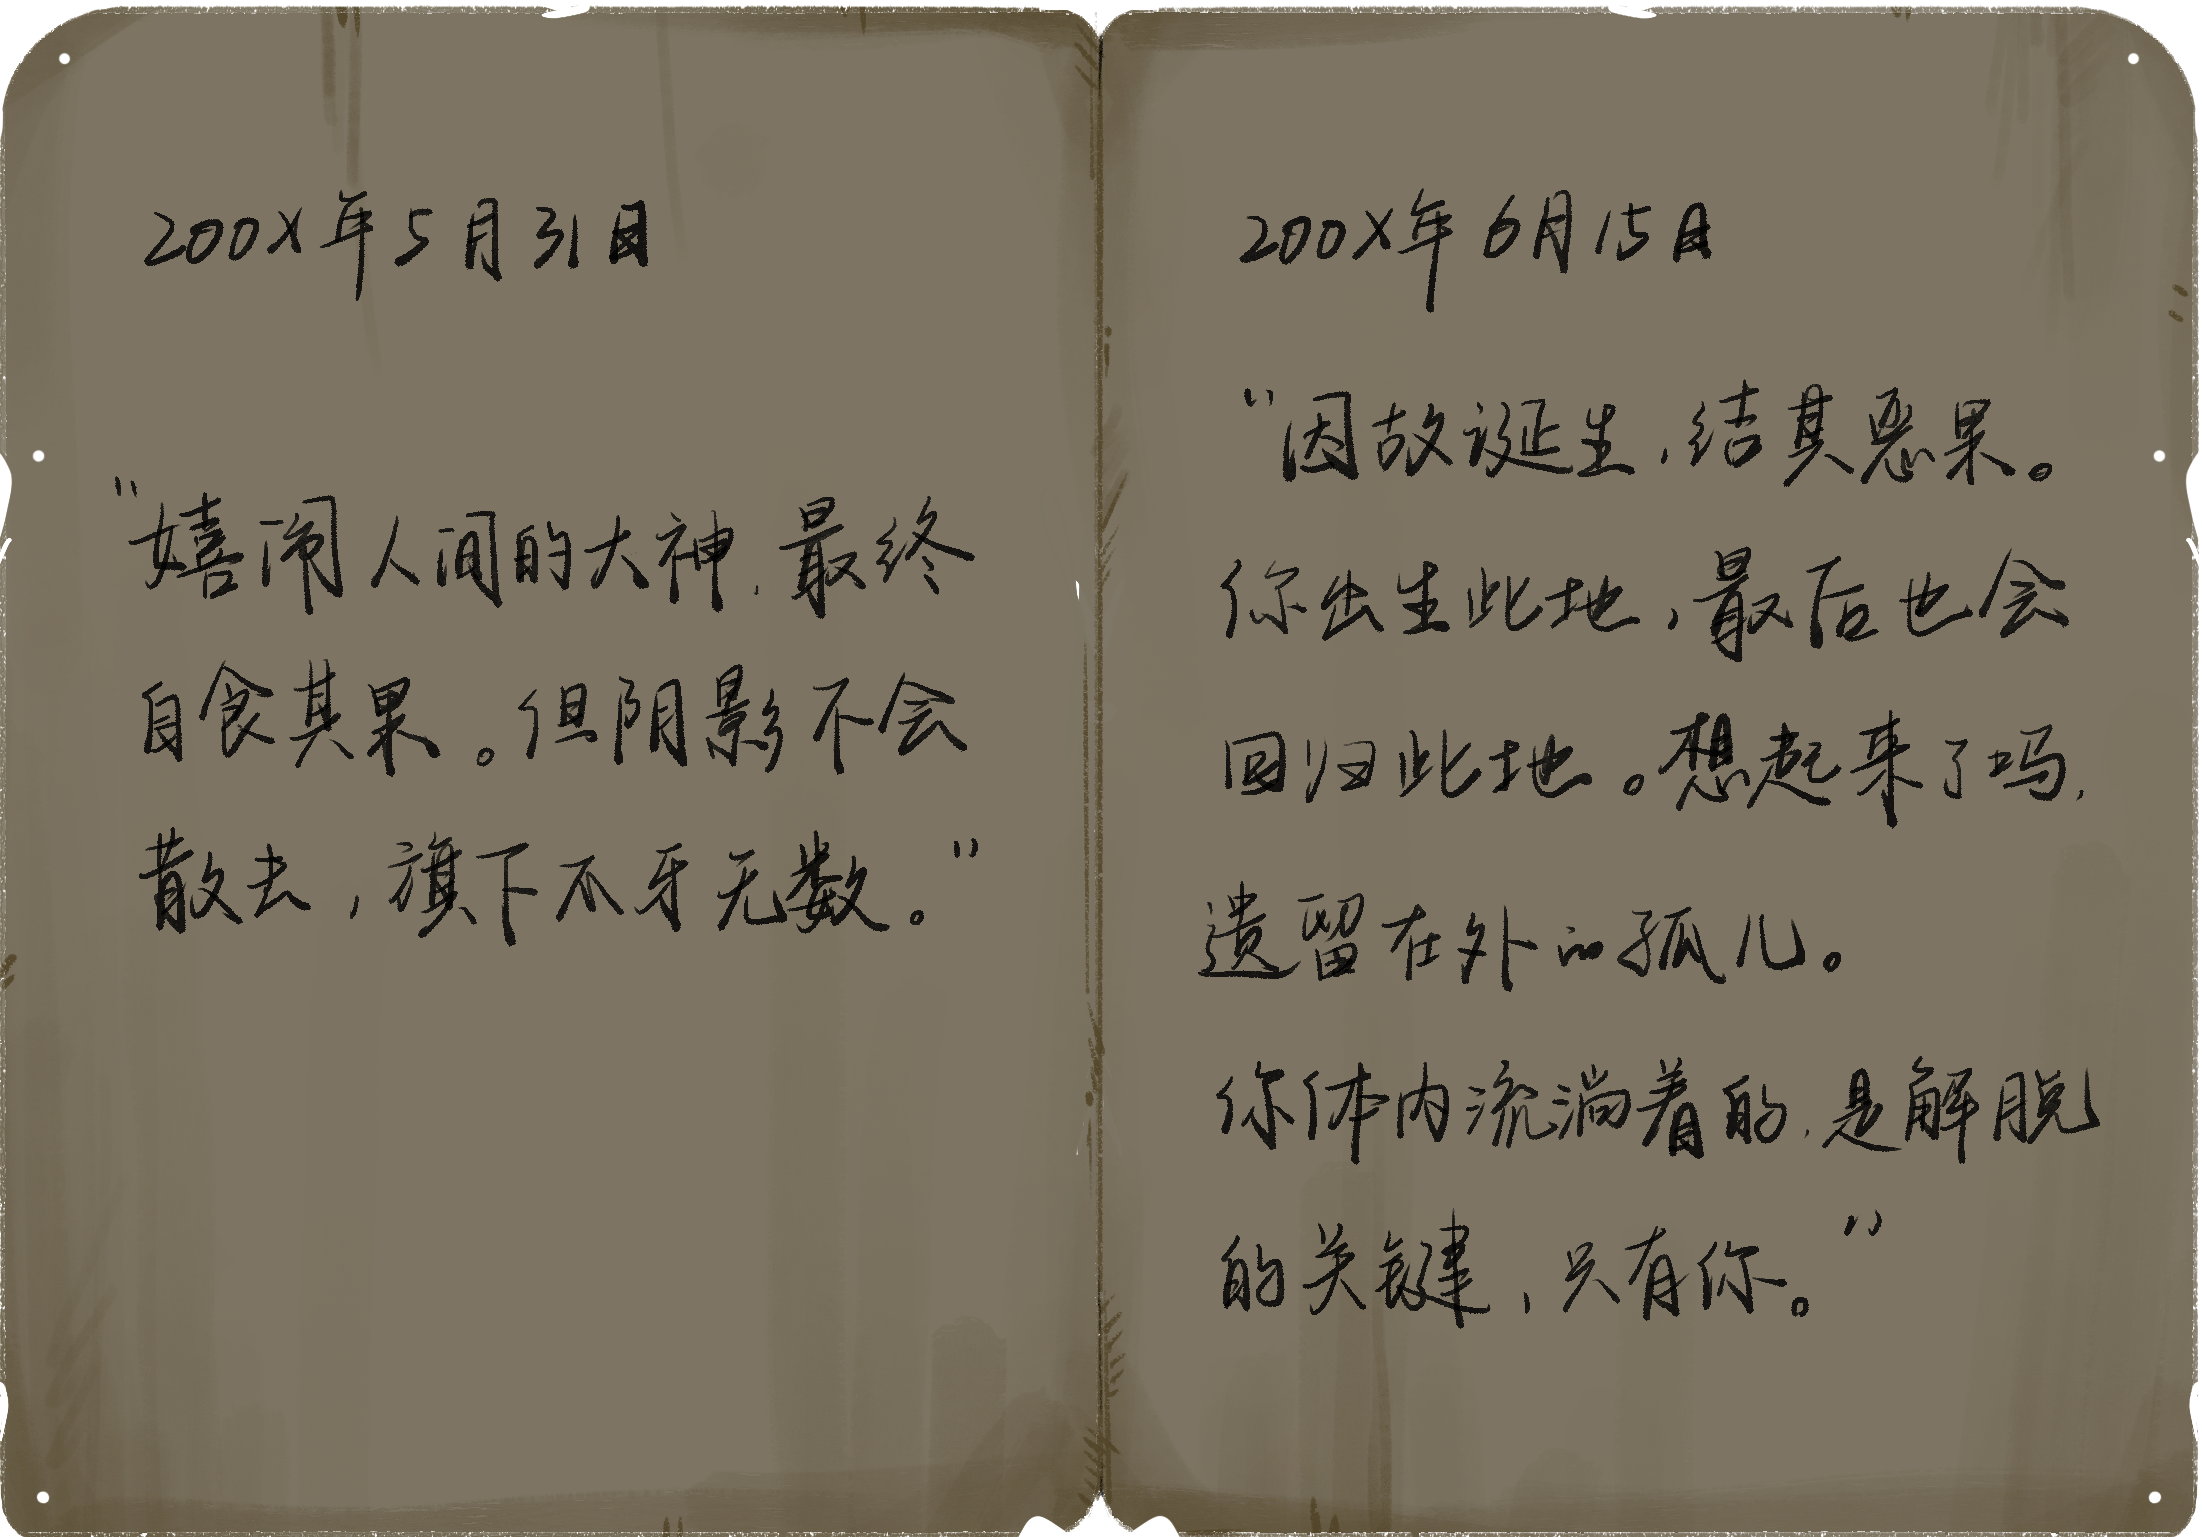 200X年5月31日
“嬉闹人间的大神,最终
自食其果。但阴影不会
散去,旗下不牙无数。”
200X年6月15日
“因故诞生,结其恶果。
你出生此地,最后也会
回归此地。想起来了吗,
遗留在外的孤儿。
你体内流淌着的,是解脱
的关键,只有你。”